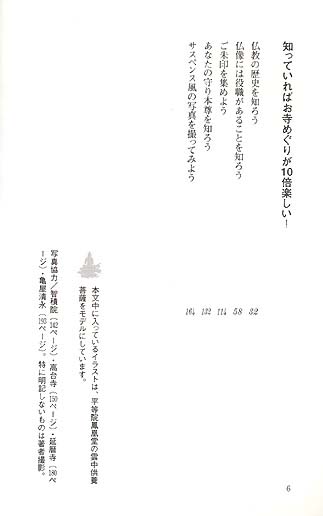 知っていればお寺めぐりが10倍楽しい！
仏教の歴史を知ろう 32
仏像には役職があることを知ろう 58
ご朱印を集めよう 114
あなたの守り本尊を知ろう 132
サスペンス風の写真を撮ってみよう 164
本文中に入っているイラストは、平等院鳳凰堂の雲中供養
菩薩をモデルにしています。
写真協力／智積院（142ページ）・高台寺（150ページ）・延暦寺（180ペ
ージ）・亀屋清永（193ページ）。特に明記しないものは著者撮影。
6